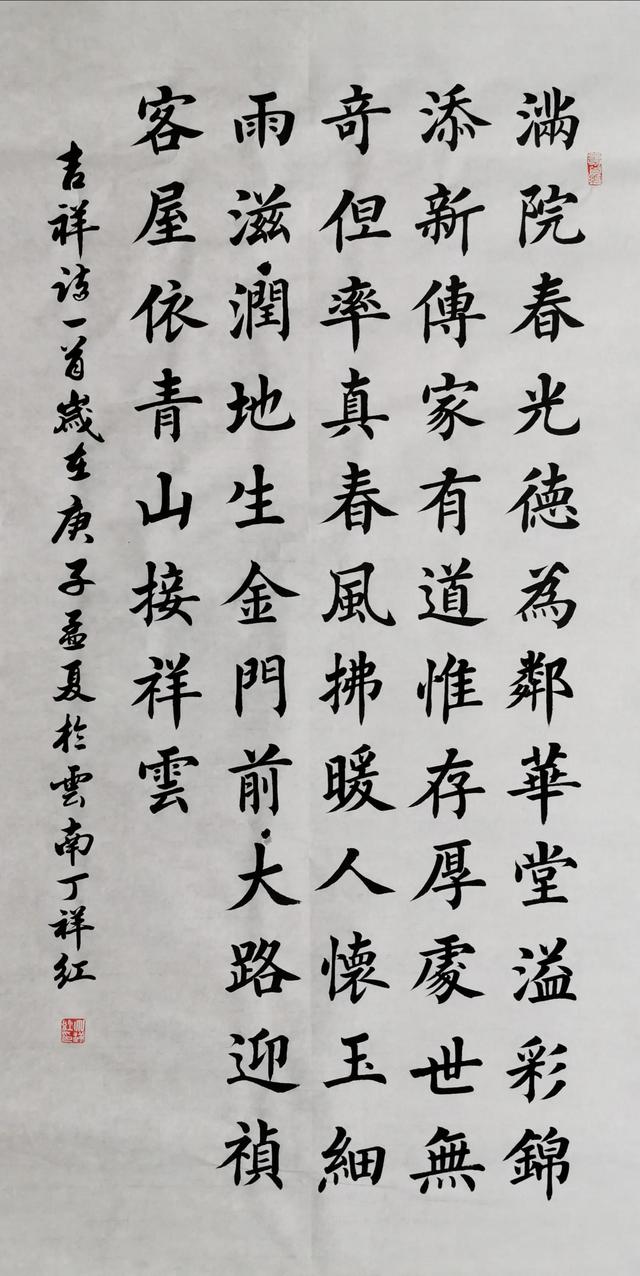 滿院春光德為鄰華堂溢彩錦
添新傳家有道惟存厚處世無
奇但率真春風拂暖人懷玉細
雨滋潤地生金門前大路迎禎
客屋依青山接祥雲
吉祥詩一首歲在庚子孟夏於雲南丁祥红